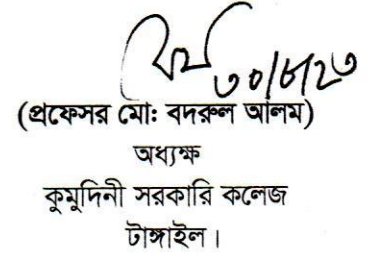 ৩০/৮/২৩
(প্রফেসর মো: বদরুল আলম)
অধ্যক্ষ
কুমুদিনী সরকারি কলেজ
টাঙ্গাইল।